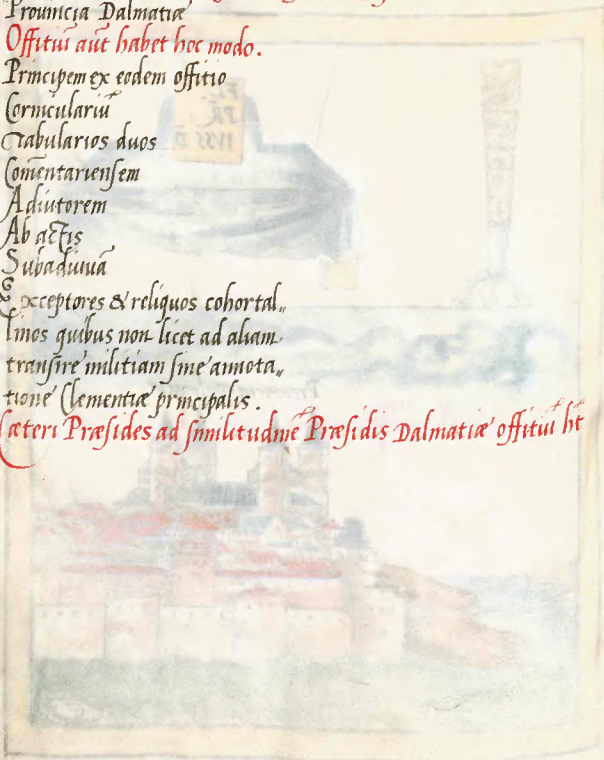 Prouincia Dalmatiæ
Offitiū aūt habet hoc modo.
Principem ex eodem offitio
Corniculariū
Tabularios duos
Com̄entariensem
Adiutorem
Ab actis
Subadiuuā
Exceptores & reliquos cohortal„
linos quibus non licet ad aliam
transire militiam sine annota„
tione Clementiæ principalis.
Cæteri Præsides ad similitudinē Præsidis Dalmatiæ offitiū hn̄t